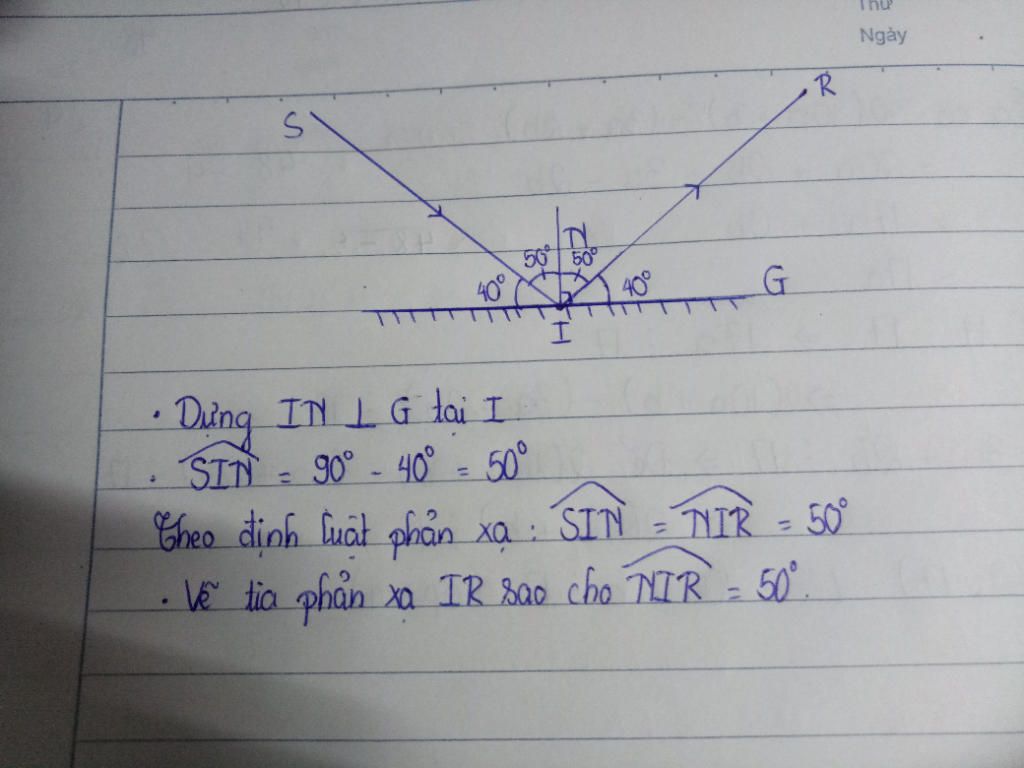 Thứ
Ngày
S
R
N
50° 50°
40° 40°
G
I
. Dựng IN ⊥ G tại I
. SIN = 90° - 40° = 50°
Theo định luật phản xạ : SIN = NIR = 50°
. Vẽ tia phản xạ IR sao cho NIR = 50°.